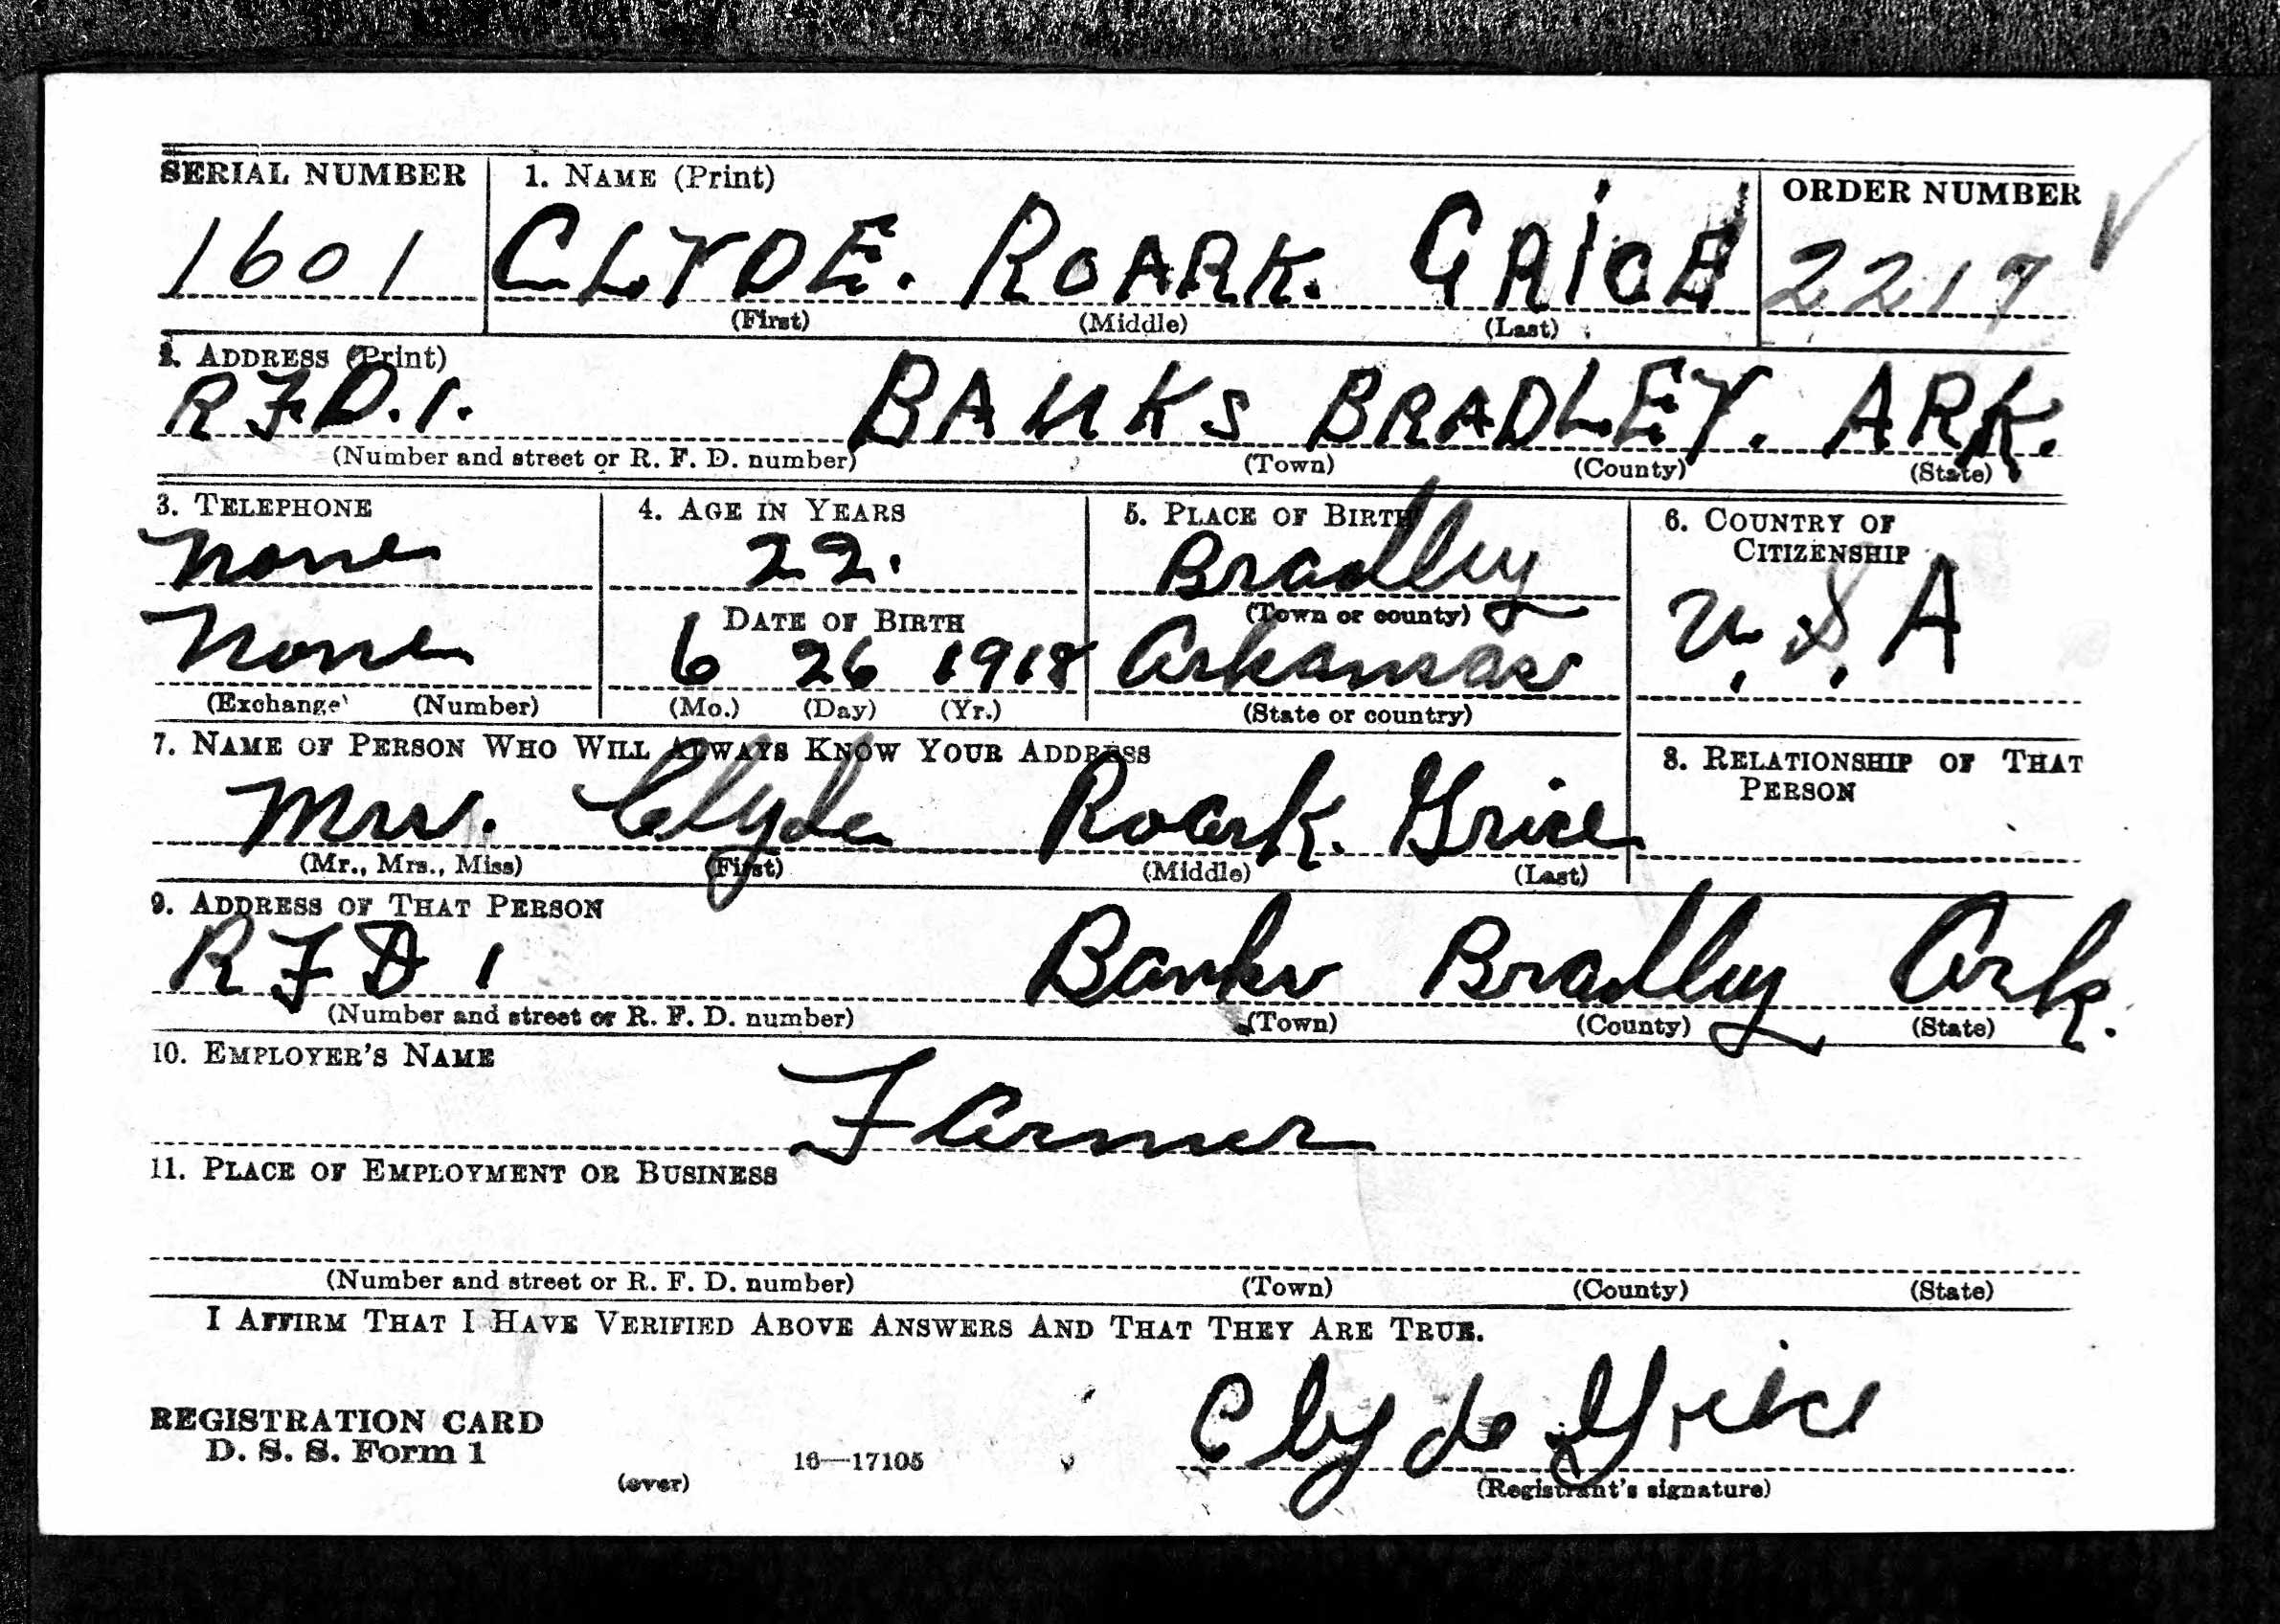 SERIAL NUMBER 1. NAME (Print) ORDER NUMBER
1601 CLYDE. ROARK. GRICE 2217
(First) (Middle) (Last)
2. ADDRESS (Print)
R F D. 1. BANKS BRADLEY. ARK.
(Number and street or R. F. D. number) (Town) (County) (State)
3. TELEPHONE 4. AGE IN YEARS 5. PLACE OF BIRTH 6. COUNTRY OF
CITIZENSHIP
None 22. Bradley
DATE OF BIRTH (Town or county) U. S. A
None 6 26 1918 Arkansas
(Exchange) (Number) (Mo.) (Day) (Yr.) (State or country)
7. NAME OF PERSON WHO WILL ALWAYS KNOW YOUR ADDRESS 8. RELATIONSHIP OF THAT
PERSON
Mrs. Clyde Roark. Grice
(Mr., Mrs., Miss) (First) (Middle) (Last)
9. ADDRESS OF THAT PERSON
R F D 1 Banks Bradley Ark.
(Number and street or R. F. D. number) (Town) (County) (State)
10. EMPLOYER'S NAME
Farmer
11. PLACE OF EMPLOYMENT OR BUSINESS
(Number and street or R. F. D. number) (Town) (County) (State)
I AFFIRM THAT I HAVE VERIFIED ABOVE ANSWERS AND THAT THEY ARE TRUE.
Clyde Grice
REGISTRATION CARD
D. S. S. Form 1 16—17105
(over) (Registrant's signature)